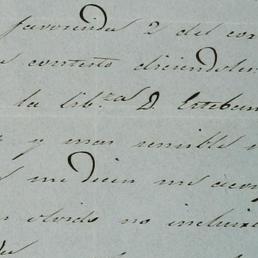 favorecida 2 del cor
contesto diciendole
la lib.za D Esteban
y mas sensible
me dicen me acon
olvido no incluir